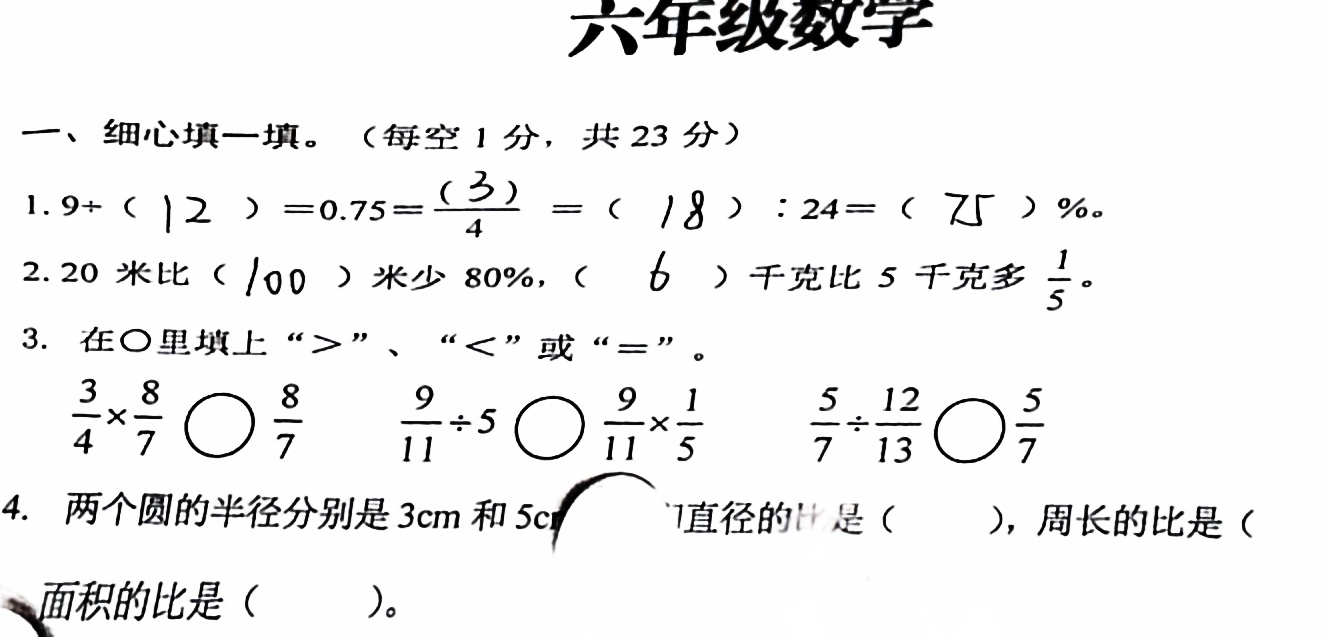 六年级数学
一、细心填一填。（每空 1 分，共 23 分）
1. 9÷（ 12 ）=0.75=(3)/4 =（ 18 ）：24=（ 75 ）%。
2. 20 米比（ 100 ）米少 80%,（ 6 ）千克比 5 千克多 1/5 。
3. 在○里填上“>”、“<”或“=”。
3/4×8/7 ○ 8/7 9/11÷5 ○ 9/11×1/5 5/7÷12/13 ○ 5/7
4. 两个圆的半径分别是 3cm 和 5c 直径的比是（ ），周长的比是（
面积的比是（ ）。